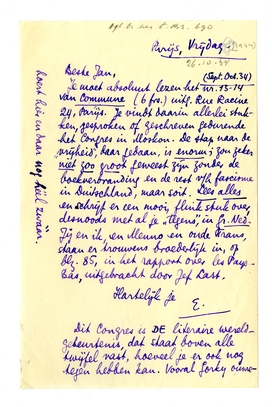 Parijs, Vrijdag
26-10-34
Beste Jan,
(Sept. Oct. 34)
Je moet absoluut lezen het nr. 13-14
van Commune (6 frs.) uitg. Rue Racine
24, Parijs. Je vindt daarin allerlei stuk-
ken, gesproken of geschreven gedurende
het Congres in Moskou. De stap naar de
vrijheid, daar gedaan, is enorm; zou zeker
niet zoo groot geweest zijn zonder de
boekverbranding en de rest v/h fascisme
in Duitschland, maar soit. Lees alles
en schrijf er een mooi, flink stuk over,
desnoods met al je "tegens", in Gr. Ned.
Jij en ik, en Menno en oude Frans,
staan er trouwens broederlijk in, op
blz. 85, in het rapport over les Pays-
Bas, uitgebracht door Jef Last.
Hartelijk je
E.
Dit Congres is DE literaire wereld-
gebeurtenis, dat staat boven alle
twijfel vast, hoeveel je er ook nog
tegen hebben kan. Vooral Gorky
hier en daar nog héél zwaar.